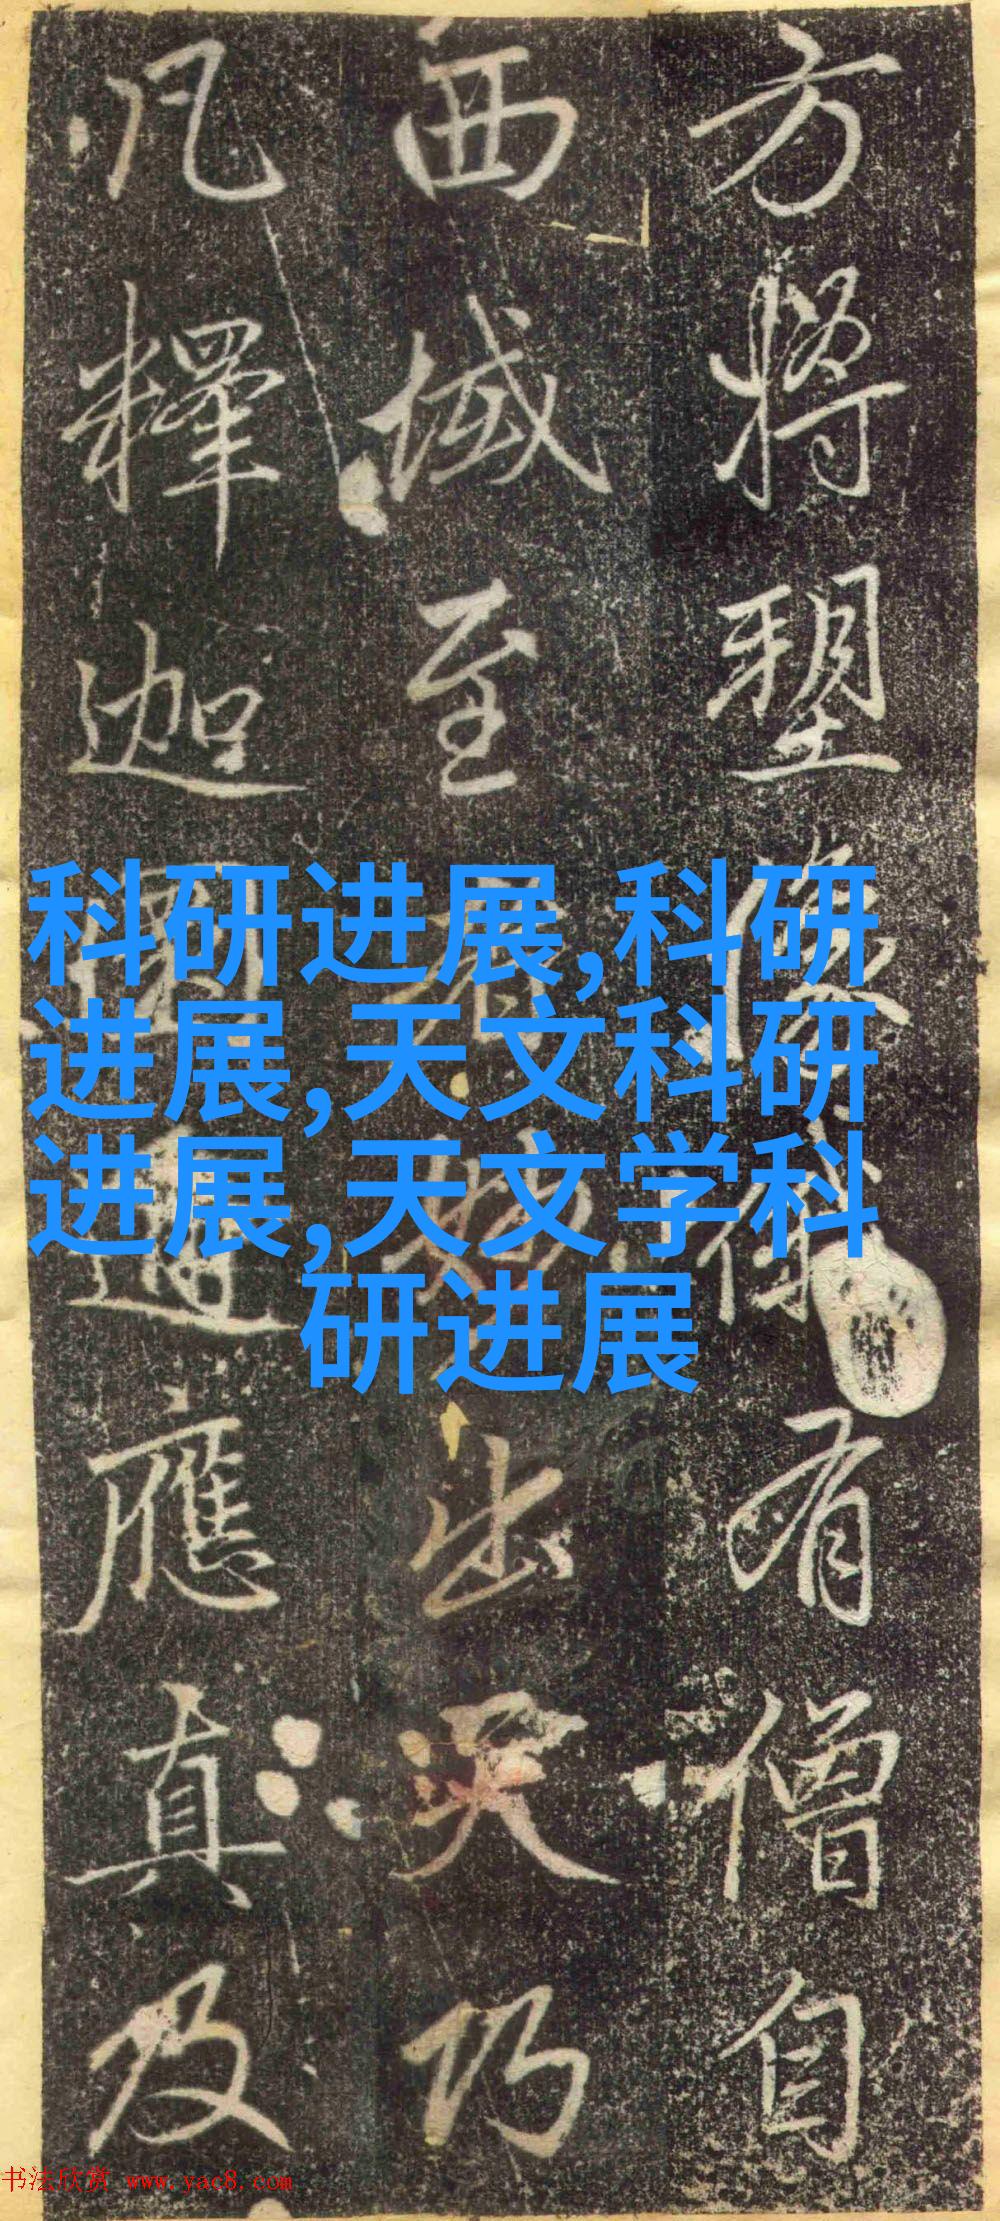 方將塑像俄有僧自
西域至出乃
凡釋迦應真及
科研进展,科研
进展,天文科研
进展,天文学科
研进展
书法欣赏 www.yac8.com